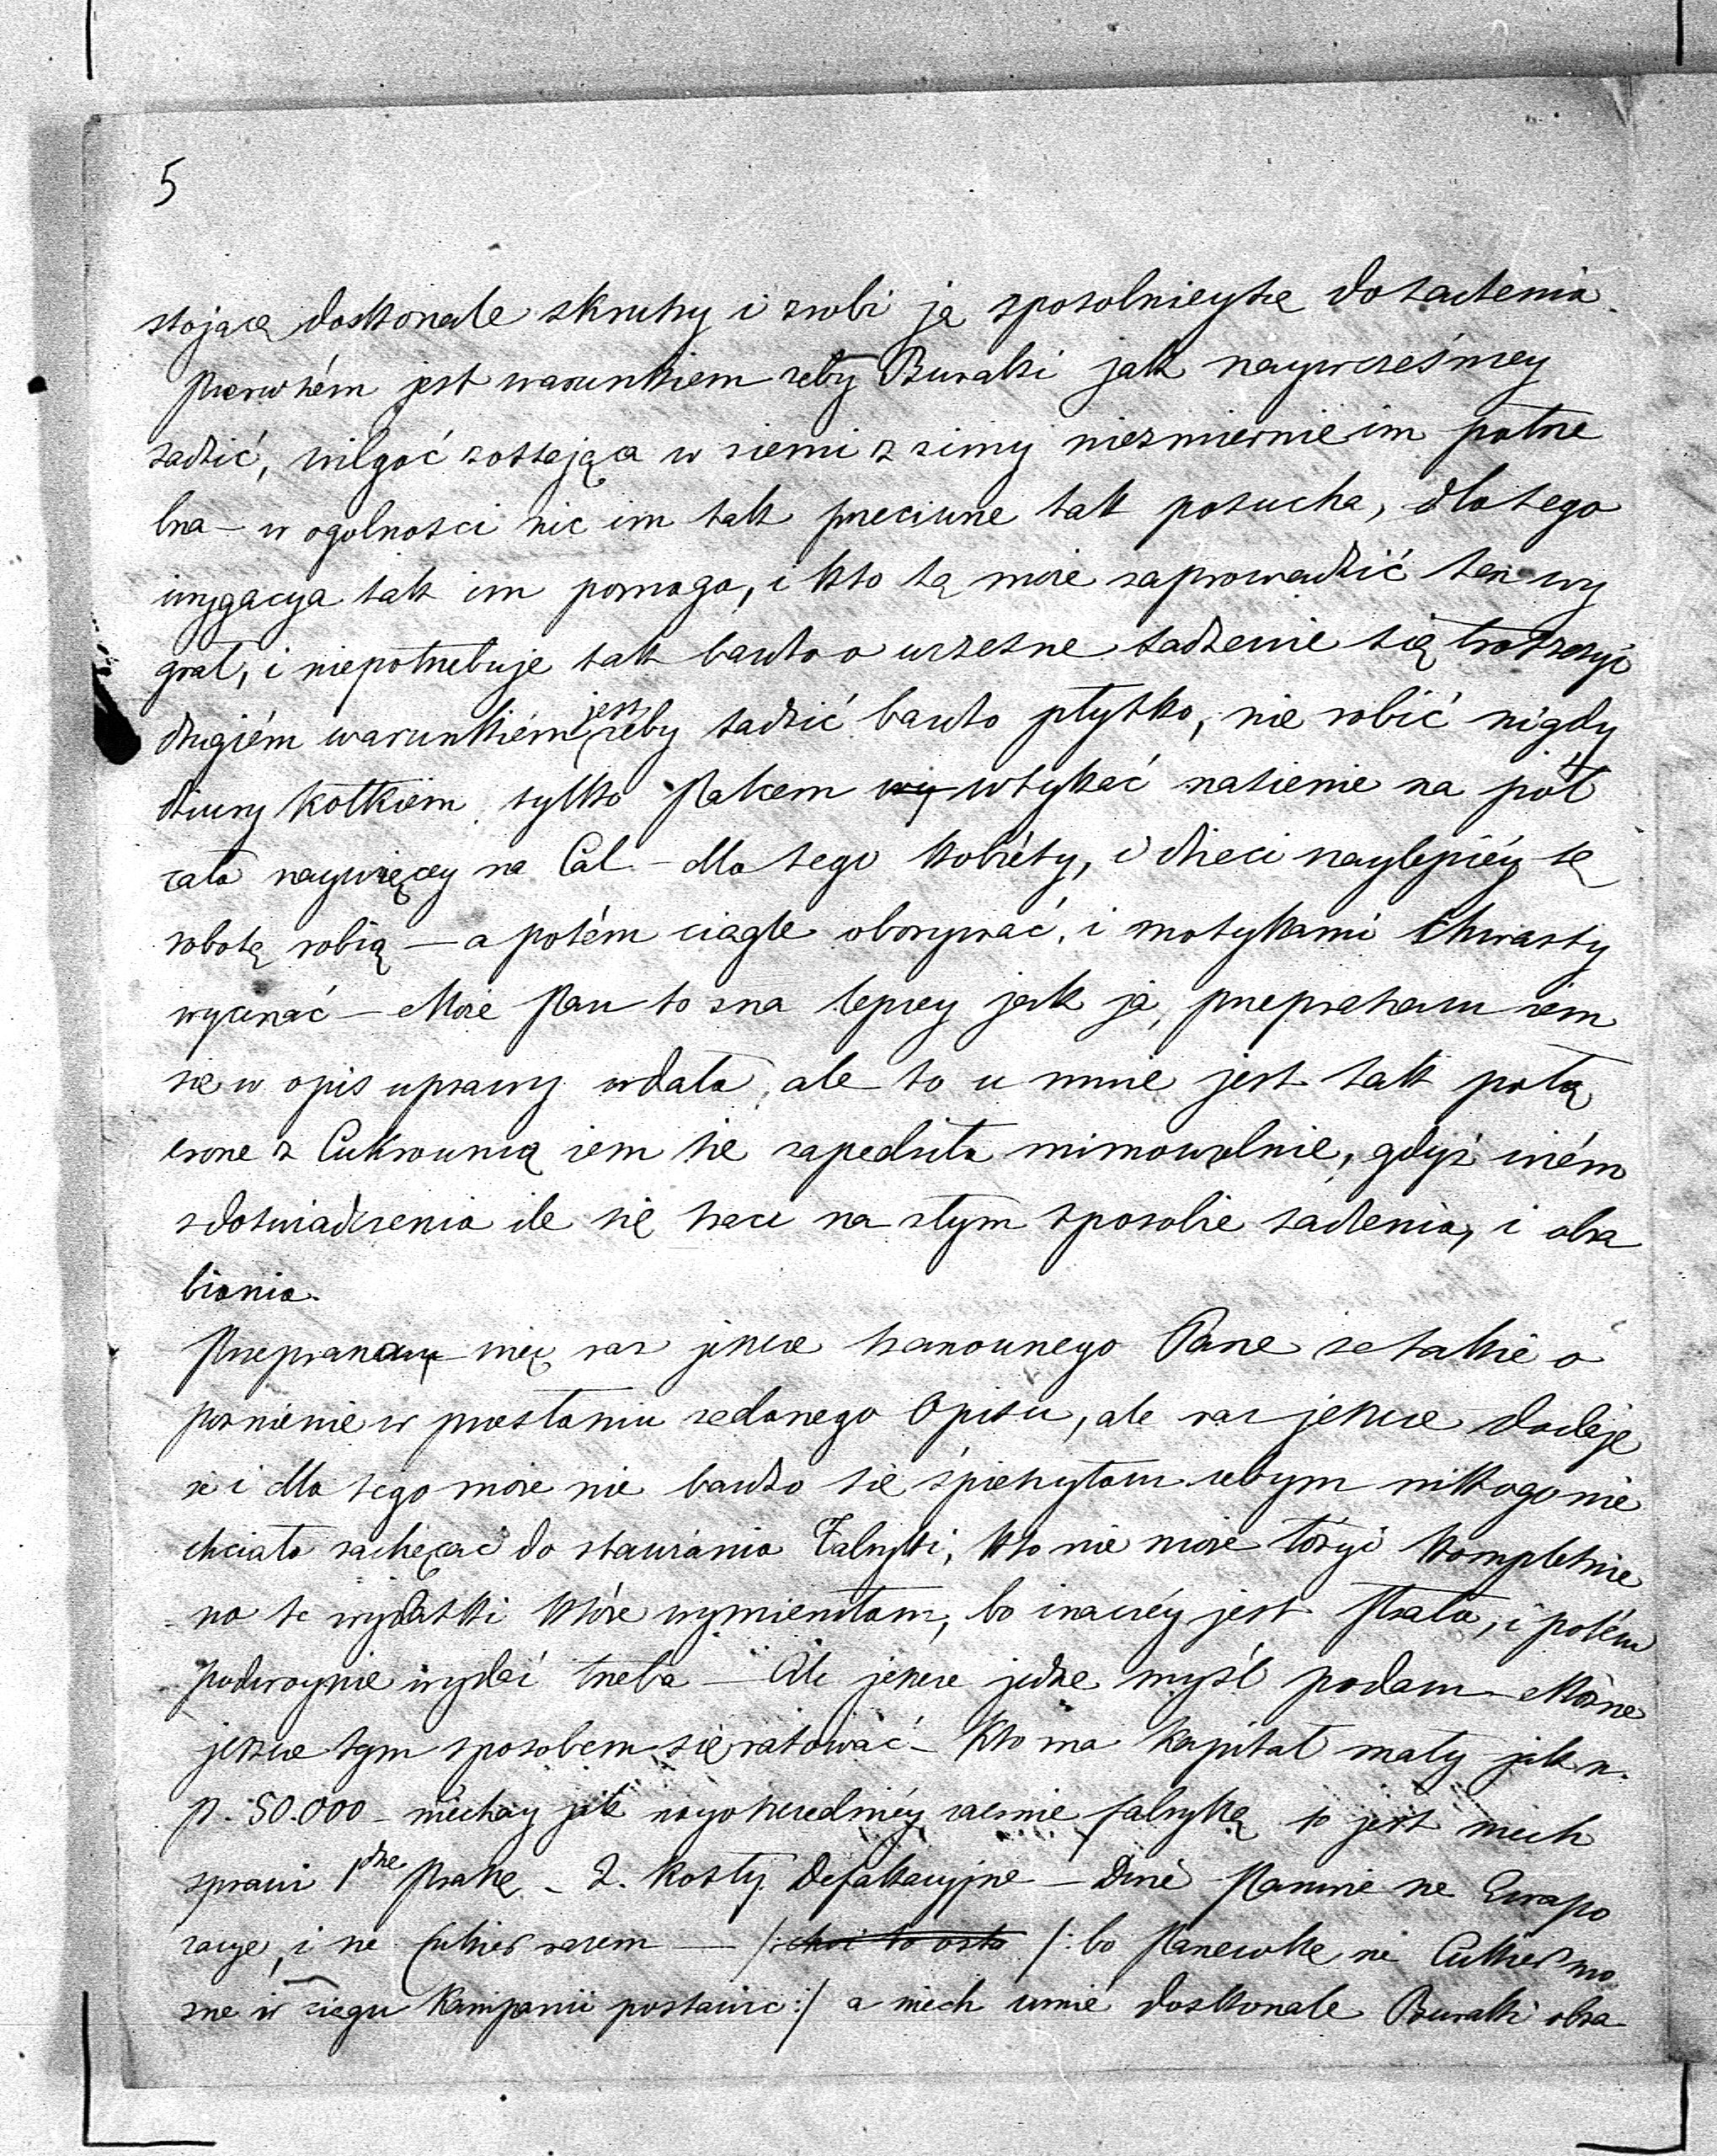 5
stojącą doskonale skruszy i zrobi ją sposobnieyszą do sadzenia.
Pierwszém jest warunkiem żeby Buraki jak naywcześniey
sadzić, wilgoć zostająca w ziemi z zimy niezmiernie im potrze
bna – w ogolnosci nic im tak przeciwne jak posucha, dlatego
irygacya tak im pomaga, i kto tą może zaprowadzić ten wy
grał, i niepotrzebuje tak bardzo o wczesne sadzenie się troszczyć
drugiém warunkiém jest żeby sadzić bardzo płytko, nie robić nigdy
dziury kołkiem, tylko Palcem wy wtykać nasienie na pół
cala naywięcey na Cal – dla tego kobiéty, i dzieci naylepiéy tę
robotę robią – a potém ciągle oborywać, i motykami Chwasty
wycinać – Może Pan to zna lepiey jak ja, przepraszam żem
się w opis uprawy wdała, ale to u mnie jest tak połą
czone z Cukrownią żem się zapędziła mimowolnie, gdyż wiém
z doswiadczenia ile się traci na złym sposobie sadzenia, i obra
biania.
Przepraszam więc raz jeszcze szanownego Pana za takie o
poznienie w przesłaniu żądanego Opisu, ale raz jeszcze dodaję
że i dla tego może nie bardzo się śpieszyłam żebym nikogo nie
chciała zachęcać do stawiania Fabryki, kto nie może łożyć kompletnie
na te wydatki które wymieniłam, bo inaczéy jest strata, i potém
podwoynie wydać trzeba – Ale jeszcze jedną myśl podam – Można
jeszcze tym sposobem się ratować – Kto ma kapitał mały jak n.
p. 50.000 – niechay jak nayoszczedniéy zacznie fabrykę to jest niech
sprawi 1dną Prasę – 2. kotły Defakacyjne – Dwie Panwie na Ewapo
racye, i na Cukier razem – /: choi to osta /: bo Panewkę na Cukier mo
żna w ciągu Kampanii postawić :/ a niech umie doskonale Buraki obra-